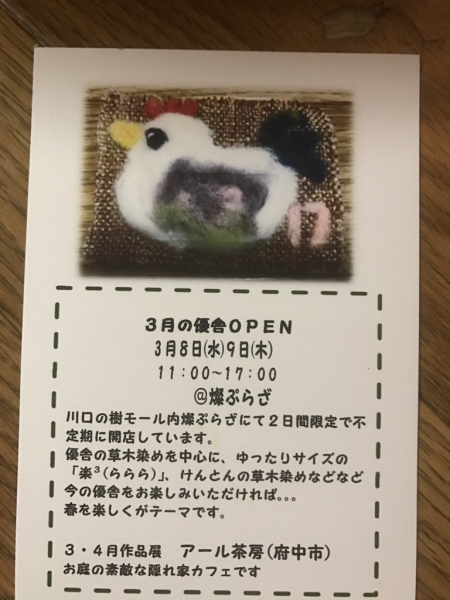 17
3月の優舎OPEN
3月8日(水)9日(木)
11:00~17:00
@燦ぷらざ
川口の樹モール内燦ぷらざにて2日間限定で不
定期に開店しています。
優舎の草木染めを中心に、ゆったりサイズの
「楽³(ららら)」、けんとんの草木染めなどなど
今の優舎をお楽しみいただければ。。。
春を楽しくがテーマです。
3・4月作品展 アール茶房(府中市)
お庭の素敵な隠れ家カフェです